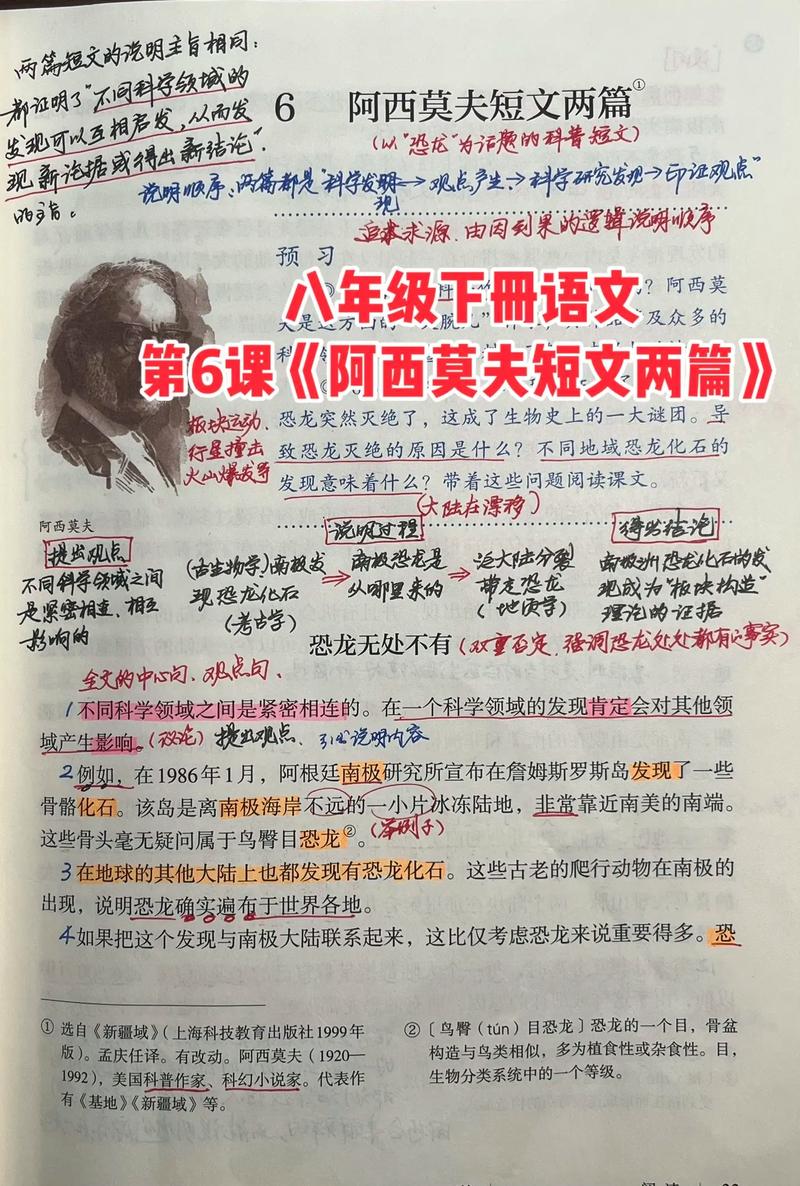 两篇短文的说明主旨相同：
都证明了“不同科学领域的
发现可以互相启发，从而发
现新论据或得出新结论”
的主旨。
6 阿西莫夫短文两篇①
（以“恐龙”为话题的科普短文）
说明顺序：两篇都是“科学发明→观点产生→科学研究发现→印证观点”
现
追求求源，由因到果的逻辑说明顺序
预 习
八年级下册语文
？阿西莫
及众多的
第6课《阿西莫夫短文两篇》
恐龙突然灭绝了，这成了生物史上的一大谜团。导
致恐龙灭绝的原因是什么？不同地域恐龙化石的
发现意味着什么？带着这些问题阅读课文。
板块运动、
行星撞击
火山爆发等
（大陆在漂移）
阿西莫夫
提出观点
不同科学领域之间
是紧密相连、相互
影响的
说明过程
（古生物学）南极发
现恐龙化石
（考古学）
⇒南极恐龙是
从哪里来的
⇒泛大陆分裂
带走恐龙
（地质学）
得出结论
南极洲恐龙化石的发
现成为“板块构造”
理论的证据
恐龙无处不有（双重否定，强调恐龙处处都有的事实）
全文的中心句、观点句、
1 不同科学领域之间是紧密相连的。在一个科学领域的发现肯定会对其他领
域产生影响。（议论）提出观点、引出说明内容
2 例如，在1986年1月，阿根廷南极研究所宣布在詹姆斯罗斯岛发现了一些
骨骼化石。该岛是离南极海岸不远的一小片冰冻陆地，非常靠近南美的南端。
这些骨头毫无疑问属于鸟臀目恐龙②。（举例子）
3 在地球的其他大陆上也都发现有恐龙化石。这些古老的爬行动物在南极的
出现，说明恐龙确实遍布于世界各地。
4 如果把这个发现与南极大陆联系起来，这比仅考虑恐龙来说重要得多。恐
① 选自《新疆域》（上海科技教育出版社1999年
版）。孟庆任译。有改动。阿西莫夫（1920—
1992），美国科普作家、科幻小说家。代表作
有《基地》《新疆域》等。
② 〔鸟臀（tún）目恐龙〕恐龙的一个目，骨盆
构造与鸟类相似，多为植食性或杂食性。目，
生物分类系统中的一个等级。